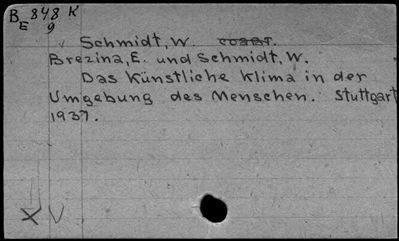 BE 848 K
9
v Schmidt, W. coabt.
Brezina, E. und Schmidt, W.
Das Künstliche Klima in der
Umgebung des Menschen. Stuttgart
1937.
X V